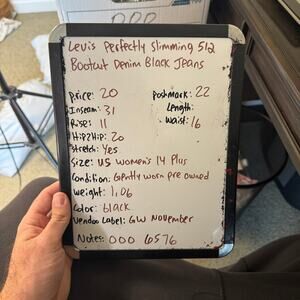 Levi's Perfectly Slimming 512
Bootcut Denim Black Jeans
Price: 20
Poshmark: 22
Inseam: 31
Length:
Rise: 11
Waist: 16
Hip2Hip: 20
Stretch: Yes
Size: US Women's 14 Plus
Condition: Gently worn pre owned
Weight: 1.06
Color: black
Vendoo Label: GW November
Notes: 000 6576